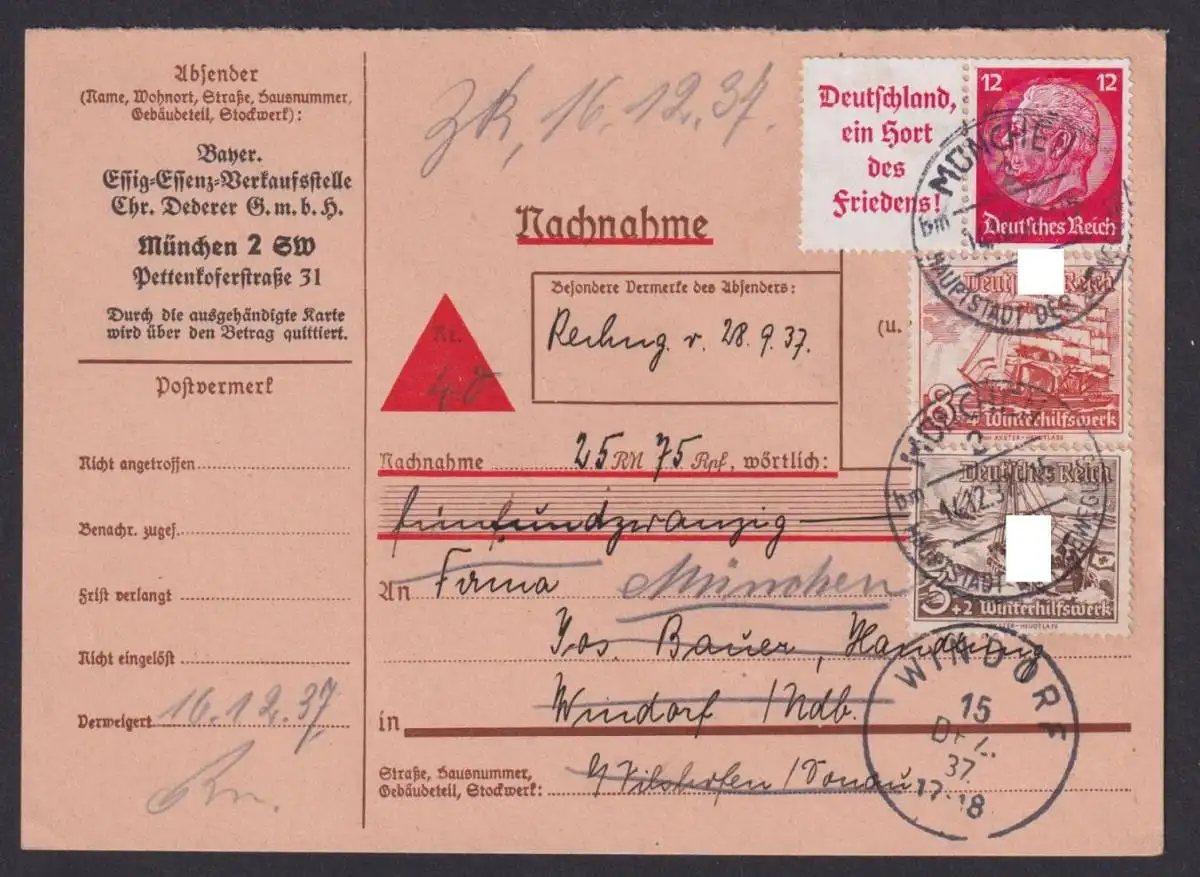 Absender
(Name, Wohnort, Straße, Hausnummer,
Gebäudeteil, Stockwerk):
Bayer.
Essig=Essenz=Verkaufsstelle
Chr. Dederer G.m.b.H.
München 2 SW
Pettenkoferstraße 31
Durch die ausgehändigte Karte
wird über den Betrag quittiert.
Postvermerk
Nicht angetroffen
Benachr. zugef.
Frist verlangt
Nicht eingelöst
Verweigert 16.12.37
Zk, 16.12.37.
Nachnahme
Besondere Vermerke des Absenders:
Rechng. v. 28.9.37.
(u.
Nr.
Nachnahme 25 RM 75 Rpf, wörtlich:
fünfundzwanzig
An Firma
München
Jos. Bauer, Handlung
in Windorf / Ndb.
Straße, Hausnummer,
Gebäudeteil, Stockwerk:
b/ Vilshofen / Donau
Deutschland,
ein Hort
des
Friedens!
12 12
Deutsches Reich
MÜNCHEN
bm
HAUPTSTADT DER
Deutsches Reich
8 + 4 Winterhilfswerk
AXSTER-HEUDTLASS
MÜNCHEN
2
bm 14.12.37
HAUPTSTADT DER BEWEGUNG
Deutsches Reich
3 +2 Winterhilfswerk
AXSTER-HEUDTLASS
WINDORF
15
DEZ.
37
17-18